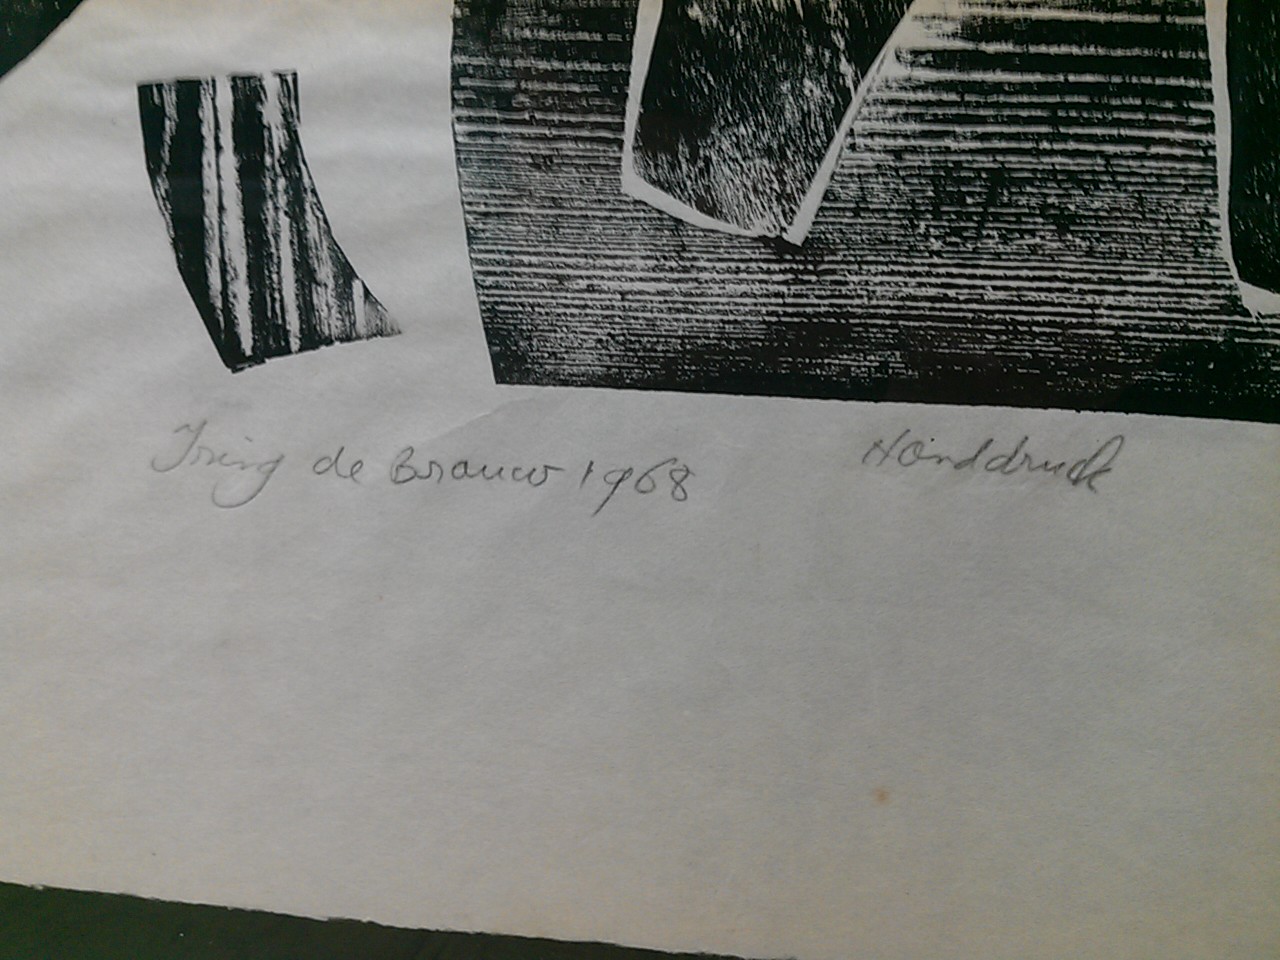 Iring de Brauw 1968 Handdruck